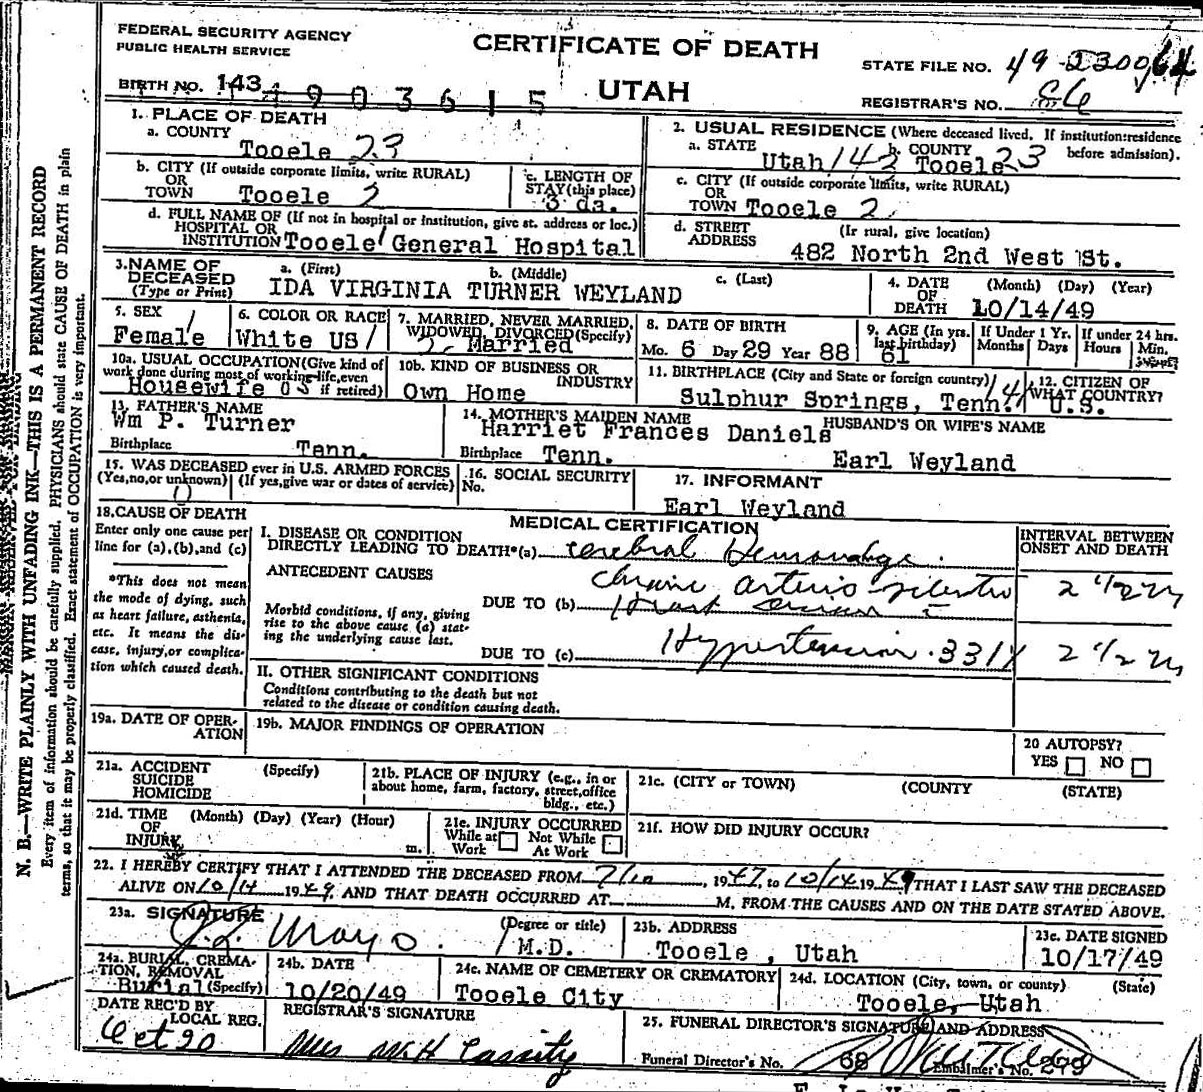 FEDERAL SECURITY AGENCY
PUBLIC HEALTH SERVICE
CERTIFICATE OF DEATH
UTAH
STATE FILE NO. 49
BIRTH NO. 143 4903615
REGISTRAR'S NO. 86
1. PLACE OF DEATH
a. COUNTY
Tooele 23
b. CITY (If outside corporate limits, write RURAL)
OR
TOWN Tooele 2
c. LENGTH OF
STAY (this place)
3 da.
d. FULL NAME OF (If not in hospital or institution, give st. address or loc.)
HOSPITAL OR
INSTITUTION Tooele General Hospital
2. USUAL RESIDENCE (Where deceased lived. If institution:residence
before admission).
a. STATE Utah 142 b. COUNTY Tooele 23
c. CITY (If outside corporate limits, write RURAL)
OR
TOWN Tooele 2
d. STREET (If rural, give location)
ADDRESS 482 North 2nd West St.
3. NAME OF DECEASED (Type or Print) a. (First) b. (Middle) c. (Last)
IDA VIRGINIA TURNER WEYLAND
4. DATE OF DEATH (Month) (Day) (Year)
10/14/49
5. SEX 1
Female
6. COLOR OR RACE
White US 1
7. MARRIED, NEVER MARRIED,
WIDOWED, DIVORCED (Specify)
2. Married
8. DATE OF BIRTH
Mo. 6 Day 29 Year 88
9. AGE (In yrs. last birthday)
61
If Under 1 Yr. Months Days
If under 24 hrs. Hours Min.
10a. USUAL OCCUPATION (Give kind of
work done during most of working life, even
if retired)
Housewife
10b. KIND OF BUSINESS OR
INDUSTRY
Own Home
11. BIRTHPLACE (City and State or foreign country)
Sulphur Springs, Tenn.
12. CITIZEN OF
WHAT COUNTRY?
U.S.
13. FATHER'S NAME
Wm P. Turner
Birthplace Tenn.
14. MOTHER'S MAIDEN NAME
Harriet Frances Daniels
Birthplace Tenn.
HUSBAND'S OR WIFE'S NAME
Earl Weyland
15. WAS DECEASED ever in U.S. ARMED FORCES
(Yes, no, or unknown) (If yes, give war or dates of service)
0
16. SOCIAL SECURITY
No.
17. INFORMANT
Earl Weyland
18. CAUSE OF DEATH
Enter only one cause per
line for (a), (b), and (c)
*This does not mean
the mode of dying, such
as heart failure, asthenia,
etc. It means the dis-
ease, injury, or complica-
tion which caused death.
MEDICAL CERTIFICATION
I. DISEASE OR CONDITION
DIRECTLY LEADING TO DEATH*(a) Cerebral Hemorrhage.
ANTECEDENT CAUSES
Morbid conditions, if any, giving
rise to the above cause (a) stat-
ing the underlying cause last.
DUE TO (b)
DUE TO (c) Hypertension. 331X
INTERVAL BETWEEN
ONSET AND DEATH
2 1/2
2 1/2
II. OTHER SIGNIFICANT CONDITIONS
Conditions contributing to the death but not
related to the disease or condition causing death.
19a. DATE OF OPER-
ATION
19b. MAJOR FINDINGS OF OPERATION
20 AUTOPSY?
YES NO
21a. ACCIDENT (Specify)
SUICIDE
HOMICIDE
21b. PLACE OF INJURY (e.g., in or
about home, farm, factory, street, office
bldg., etc.)
21c. (CITY or TOWN) (COUNTY (STATE)
21d. TIME (Month) (Day) (Year) (Hour)
OF
INJURY m.
21e. INJURY OCCURRED
While at Work Not While At Work
21f. HOW DID INJURY OCCUR?
22. I HEREBY CERTIFY THAT I ATTENDED THE DECEASED FROM 1947, to 10/14 1949 THAT I LAST SAW THE DECEASED
ALIVE ON 10/14 1949, AND THAT DEATH OCCURRED AT M, FROM THE CAUSES AND ON THE DATE STATED ABOVE.
23a. SIGNATURE (Degree or title)
Mayo. M.D.
23b. ADDRESS
Tooele, Utah
23c. DATE SIGNED
10/17/49
24a. BURIAL, CREMA-
TION, REMOVAL
Burial (Specify)
24b. DATE
10/20/49
24c. NAME OF CEMETERY OR CREMATORY
Tooele City
24d. LOCATION (City, town, or county) (State)
Tooele, Utah
DATE REC'D BY
LOCAL REG.
Oct 20
REGISTRAR'S SIGNATURE
Mrs M.H Cassity
25. FUNERAL DIRECTOR'S SIGNATURE AND ADDRESS
Funeral Director's No. 68 Embalmer's No. 279
N. B.—WRITE PLAINLY WITH UNFADING INK—THIS IS A PERMANENT RECORD
Every item of information should be carefully supplied. PHYSICIANS should state CAUSE OF DEATH in plain
terms, so that it may be properly classified. Exact statement of OCCUPATION is very important.